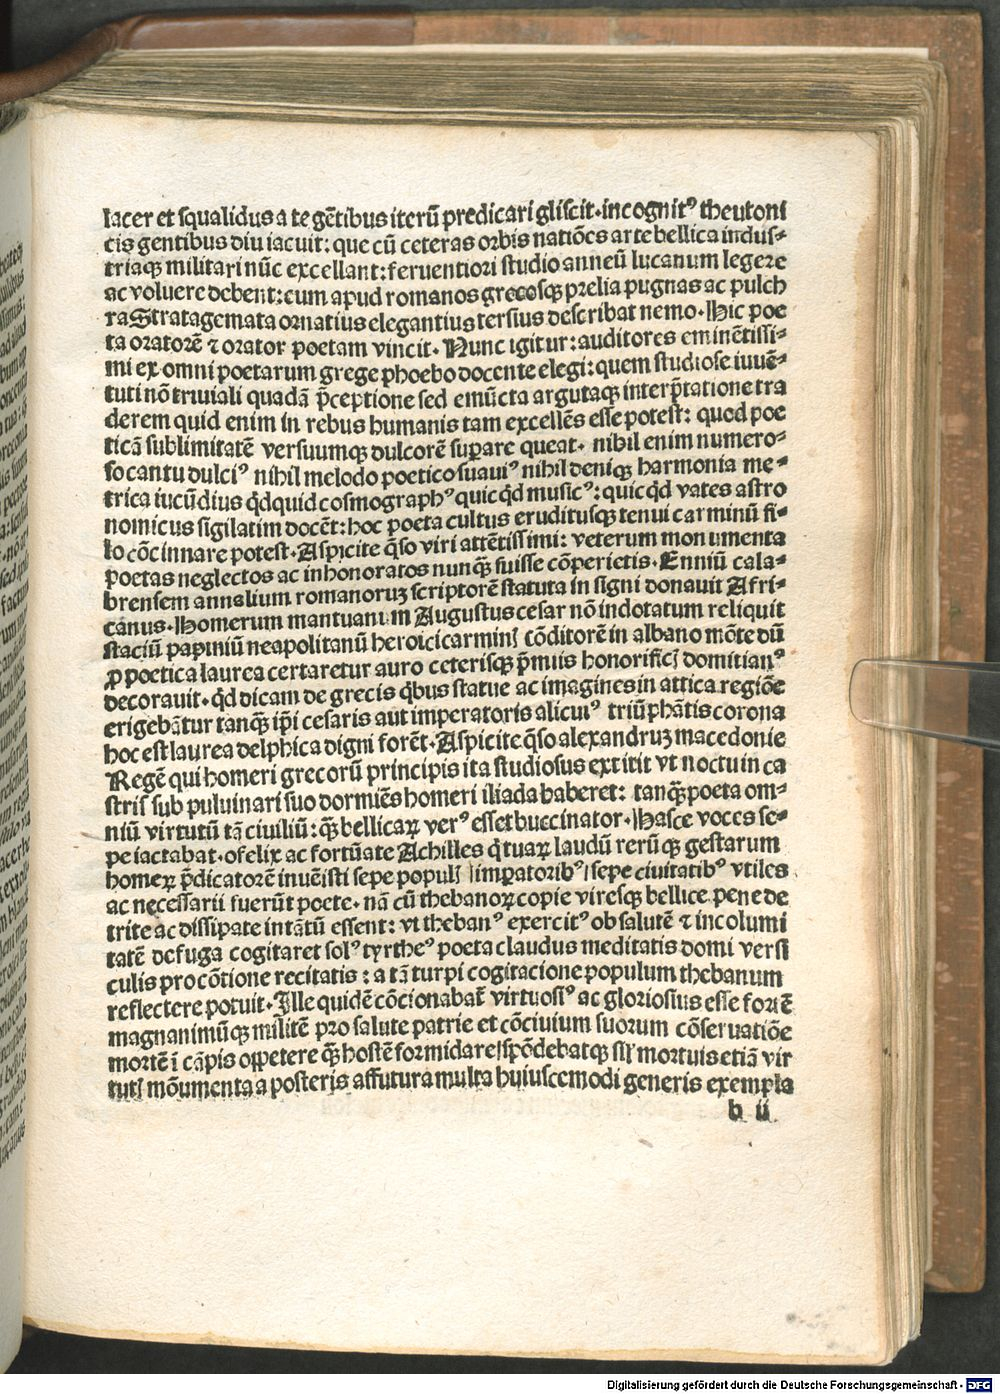 lacer et squalidus a te gētibus iterū predicari gliscit. incognitꝰ theutoni
cis gentibus diu iacuit: que cū ceteras orbis natiōes arte bellica indus-
triaqꝫ militari nūc excellant: feruentiori studio anneū lucanum legere
ac voluere debent: cum apud romanos grecosqꝫ prelia pugnas ac pulch
ra Stratagemata ornatius elegantius tersius describat nemo. Hic poe
ta oratorē ⁊ orator poetam vincit. Nunc igitur: auditores eminētissi-
mi ex omni poetarum grege phoebo docente elegi: quem studiose iuuē-
tuti nō triuiali quadā p̄ceptione sed emūcta argutaqꝫ interp̄tatione tra
derem quid enim in rebus humanis tam excellēs esse potest: quod poe
ticā sublimitatē versuumqꝫ dulcorē suꝑare queat. nihil enim numero-
so cantu dulciꝰ nihil melodo poetico suauiꝰ nihil deniqꝫ harmonia me-
trica iucūdius qd̄quid cosmographꝰ quicqd̄ musicꝰ: quicqd̄ vates astro
nomicus sigilatim docēt: hoc poeta cultus eruditusqꝫ tenui carminū fi-
lo cōcinnare potest. Aspicite q̄so viri attētissimi: veterum monumenta
poetas neglectos ac inhonoratos nunqꝫ̄ fuisse cōperietis. Enniū cala-
brensem annalium romanoruꝫ scriptorē statuta insigni donauit Afri-
canus. Homerum mantuanum Augustus cesar nō indotatum reliquit
staciū papiniū neapolitanū heroici carminꝭ cōditorē in albano mōte dū
ꝓ poetica laurea certaretur auro ceterisqꝫ p̄miis honorificꝭ domitianꝰ
decorauit. qd̄ dicam de grecis qͥbus statue ac imagines in attica regiōe
erigebātur tanqꝫ̄ ip̄i cesaris aut imperatoris alicuiꝰ triūphātis corona
hoc est laurea delphica digni forēt. Aspicite q̄so alexandruꝫ macedonie
Regē qui homeri grecorū principis ita studiosus extitit vt noctu in ca
stris sub puluinari suo dormiēs homeri iliada haberet: tanqꝫ̄ poeta om-
niū virtutū tā ciuiliū: qꝫ̄ bellicaꝝ verꝰ esset buccinator. Hasce voces se-
pe iactabat. o felix ac fortūate Achilles q̄ tuaꝝ laudū rerūqꝫ gestarum
homeꝝ p̄dicatorē inuēisti sepe populꝭ imꝑatoribꝰ sepe ciuitatibꝰ vtiles
ac necessarii fuerūt poete. nā cū thebanoꝝ copie viresqꝫ bellice pene de
trite ac dissipate intātū essent: vt thebanꝰ exercitꝰ ob salutē ⁊ incolumi
tatē de fuga cogitaret solꝰ tyrtheꝰ poeta claudus meditatis domi versi
culis pro cōtione recitatis: a tā turpi cogitacione populum thebanum
reflectere potuit. Ille quidē cōcionabat̄ virtuosiꝰ ac gloriosius esse fortē
magnanimūqꝫ militē pro salute patrie et cōciuium suorum cōseruatiōe
mortē ī cāpis oppetere qꝫ̄ hostē formidare spōdebatqꝫ mortuis etiā vir
tutꝭ mōumenta a posteris affutura multa huiuscemodi generis exempla
b ii
Digitalisierung gefördert durch die Deutsche Forschungsgemeinschaft - DFG